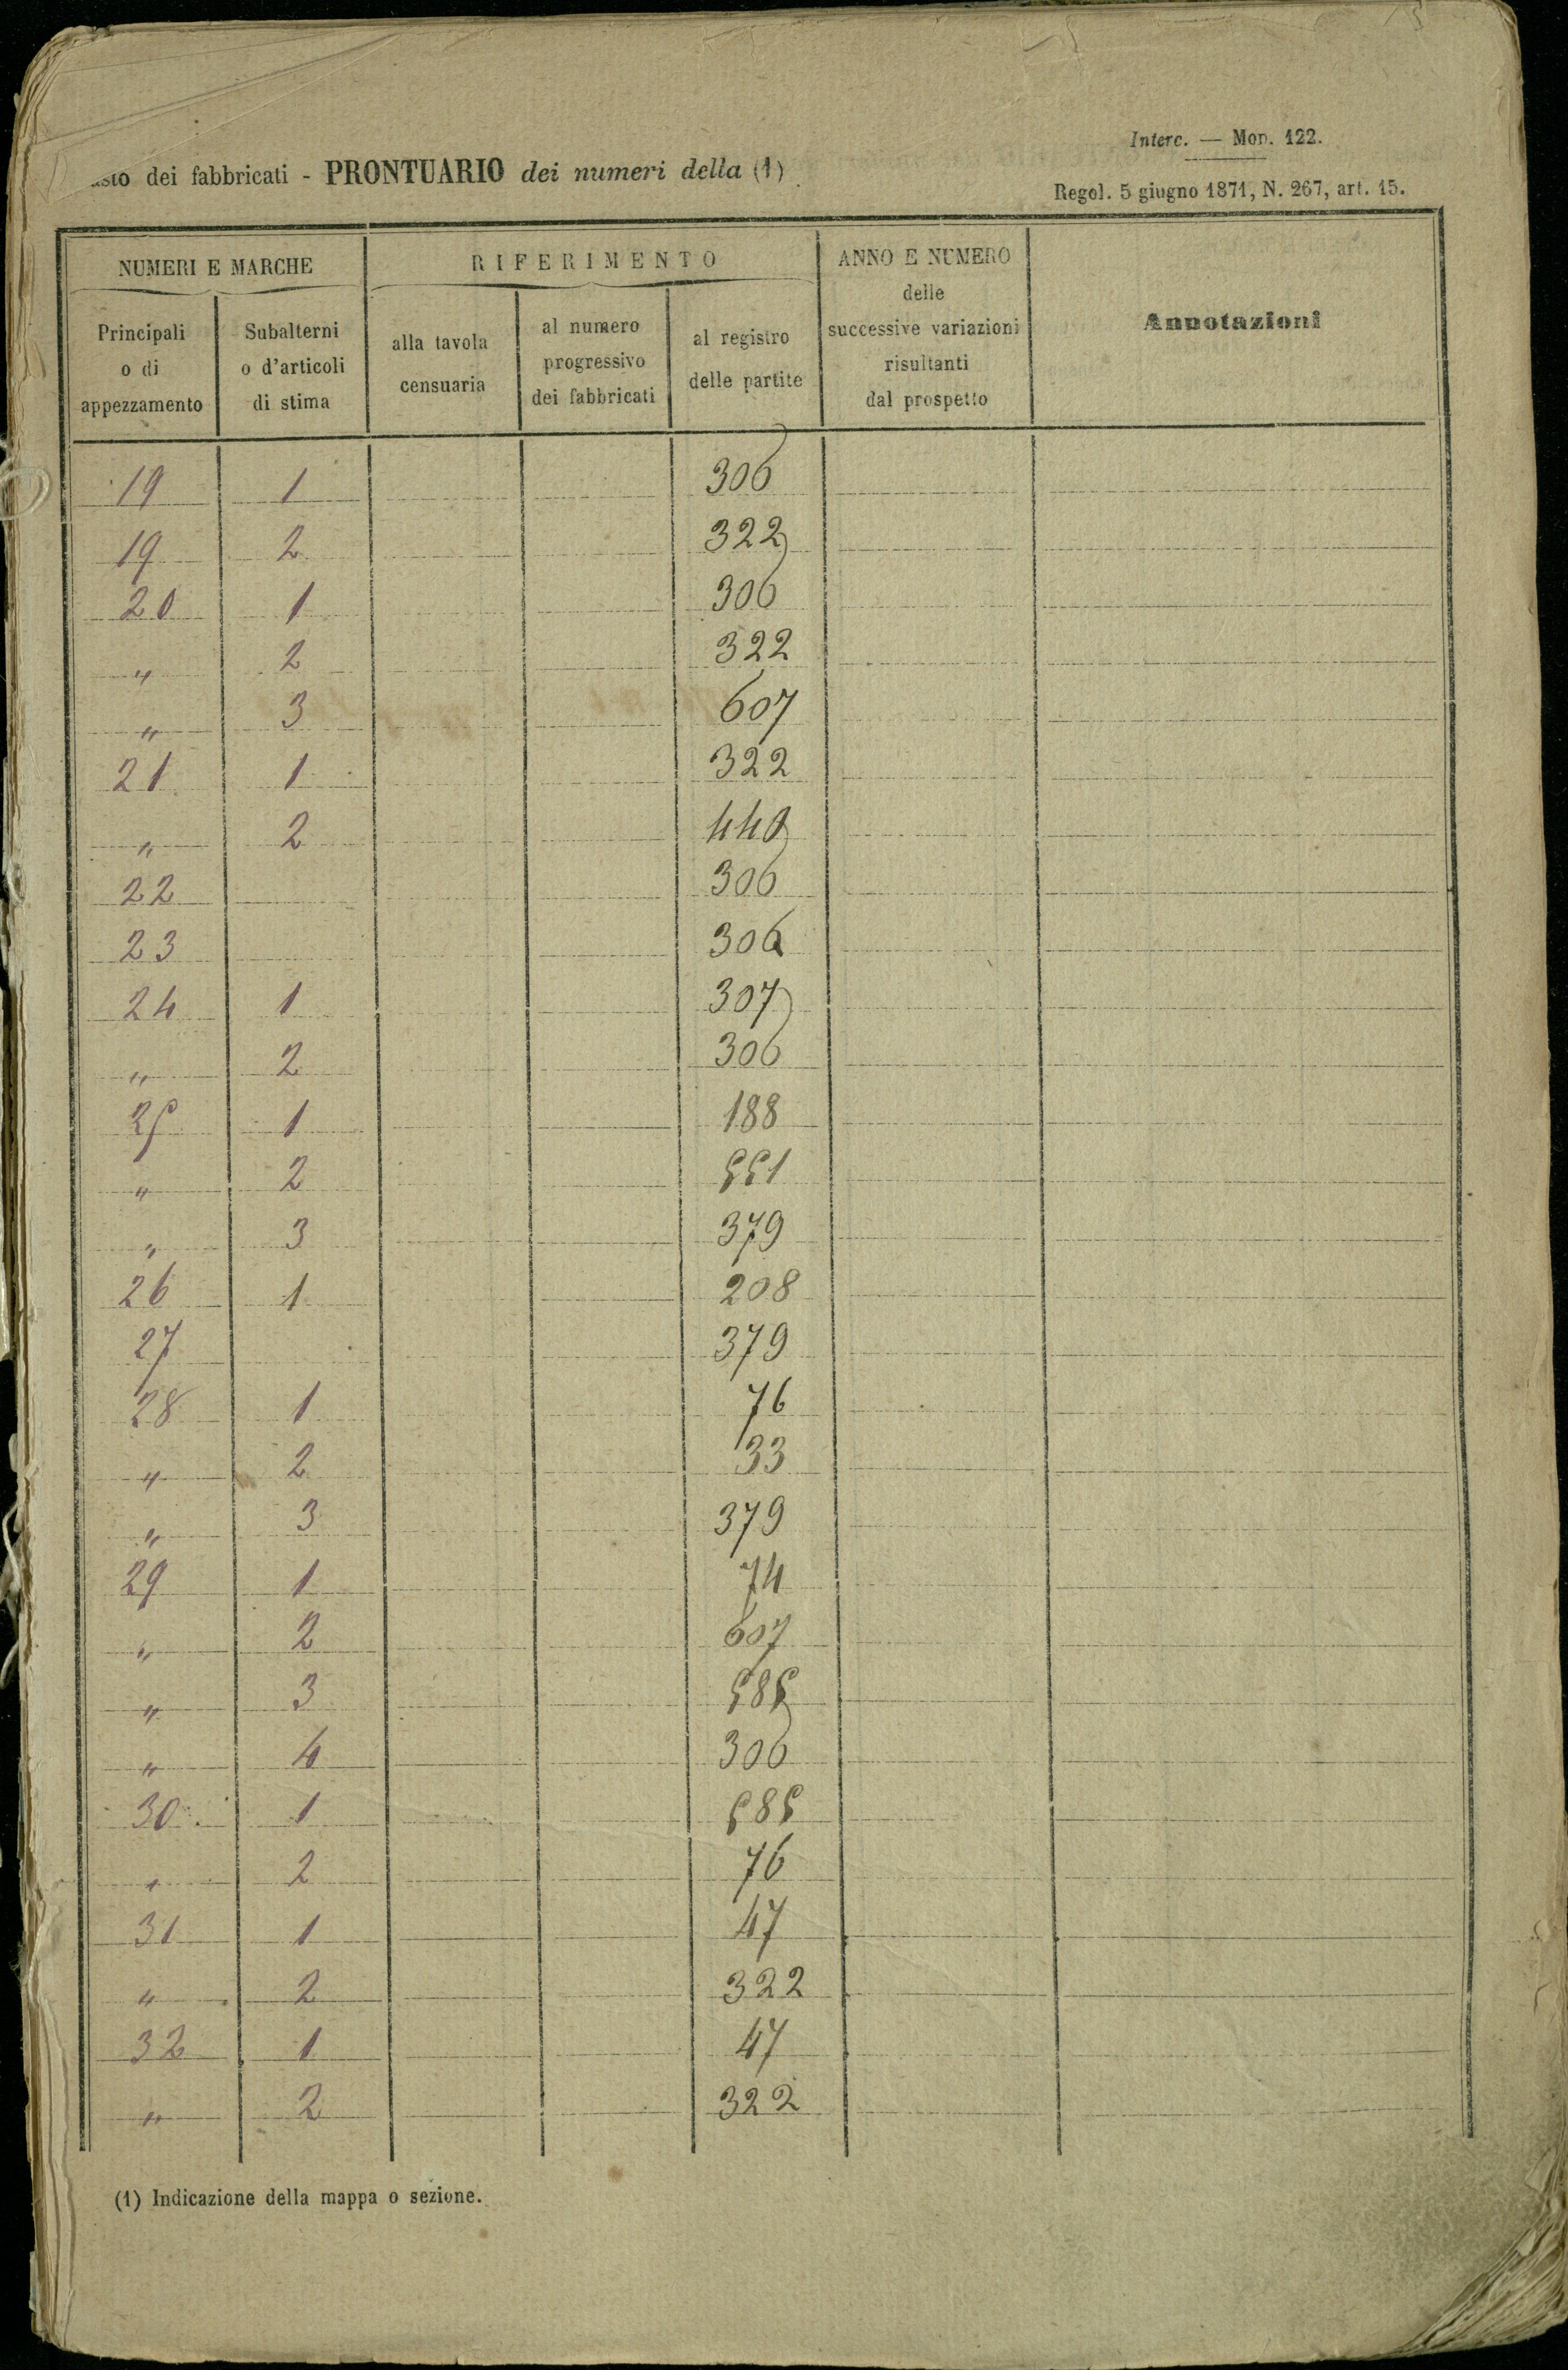 Interc. — Mod. 122.
dei fabbricati - PRONTUARIO dei numeri della (1)
Regol. 5 giugno 1871, N. 267, art. 15.
NUMERI E MARCHE RIFERIMENTO ANNO E NUMERO delle successive variazioni risultanti dal prospetto Annotazioni
Principali o di appezzamento Subalterni o d'articoli di stima alla tavola censuaria al numero progressivo dei fabbricati al registro delle partite
19 1 306
19 2 322
20 1 306
" 2 322
" 3 607
21 1 322
" 2 440
22 306
23 306
24 1 307
" 2 306
25 1 188
" 2 551
" 3 379
26 1 208
27 379
28 1 76
" 2 33
" 3 379
29 1 74
" 2 607
" 3 585
" 4 306
30 1 585
" 2 76
31 1 47
" 2 322
32 1 47
" 2 322
(1) Indicazione della mappa o sezione.